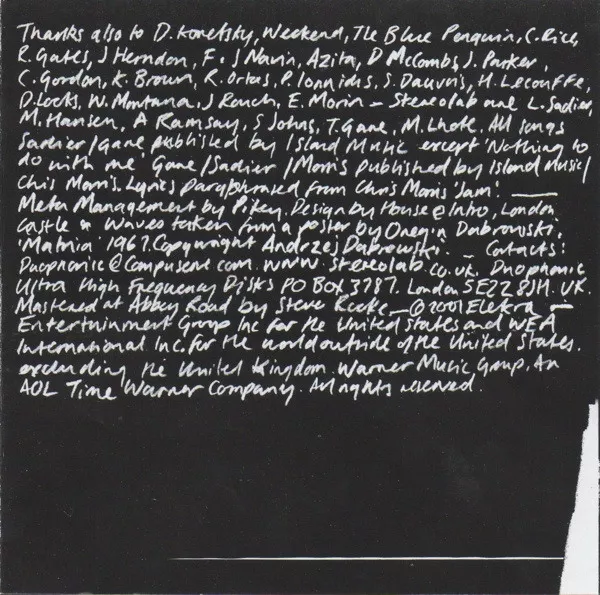 Thanks also to D. Konetsky, Weekend, The Blue Penguin, C. Rice,
R. Gates, J Herndon, F & J Navin, Azita, D McCombs, J. Parker,
C. Gordon, K. Brown, R. Ortas, P. Ionnidis, S. Dauvois, H. Lecouffe,
D. Locks, W. Montana, J Rauch, E. Morin – Stereolab are L. Sadier,
M. Hansen, A Ramsay, S Johns, T. Gane, M. Lhote. All songs
Sadier/Gane published by Island Music except 'Nothing to
do with me' Gane/Sadier/Morris published by Island Music/
Chris Morris. Lyrics paraphrased from Chris Morris 'Jam'. ——
Meta Management by Pikey. Design by House @ Intro, London
Castle & Waves taken from a poster by Onegin Dabrowski,
'Matnia' 1967. Copywright Andrzej Dabrowski. – Contacts:
Duophonic@Compuserve.com. www.stereolab.co.uk. Duophonic
Ultra High Frequency Disks PO Box 3787. London SE22 8JH. UK.
Mastered at Abbey Road by Steve Rooke – ℗©2001 Elektra –
Entertainment Group Inc for the United States and WEA
International Inc. for the world outside of the United States.
excluding the United Kingdom. Warner Music Group. An
AOL Time Warner Company. All rights reserved.